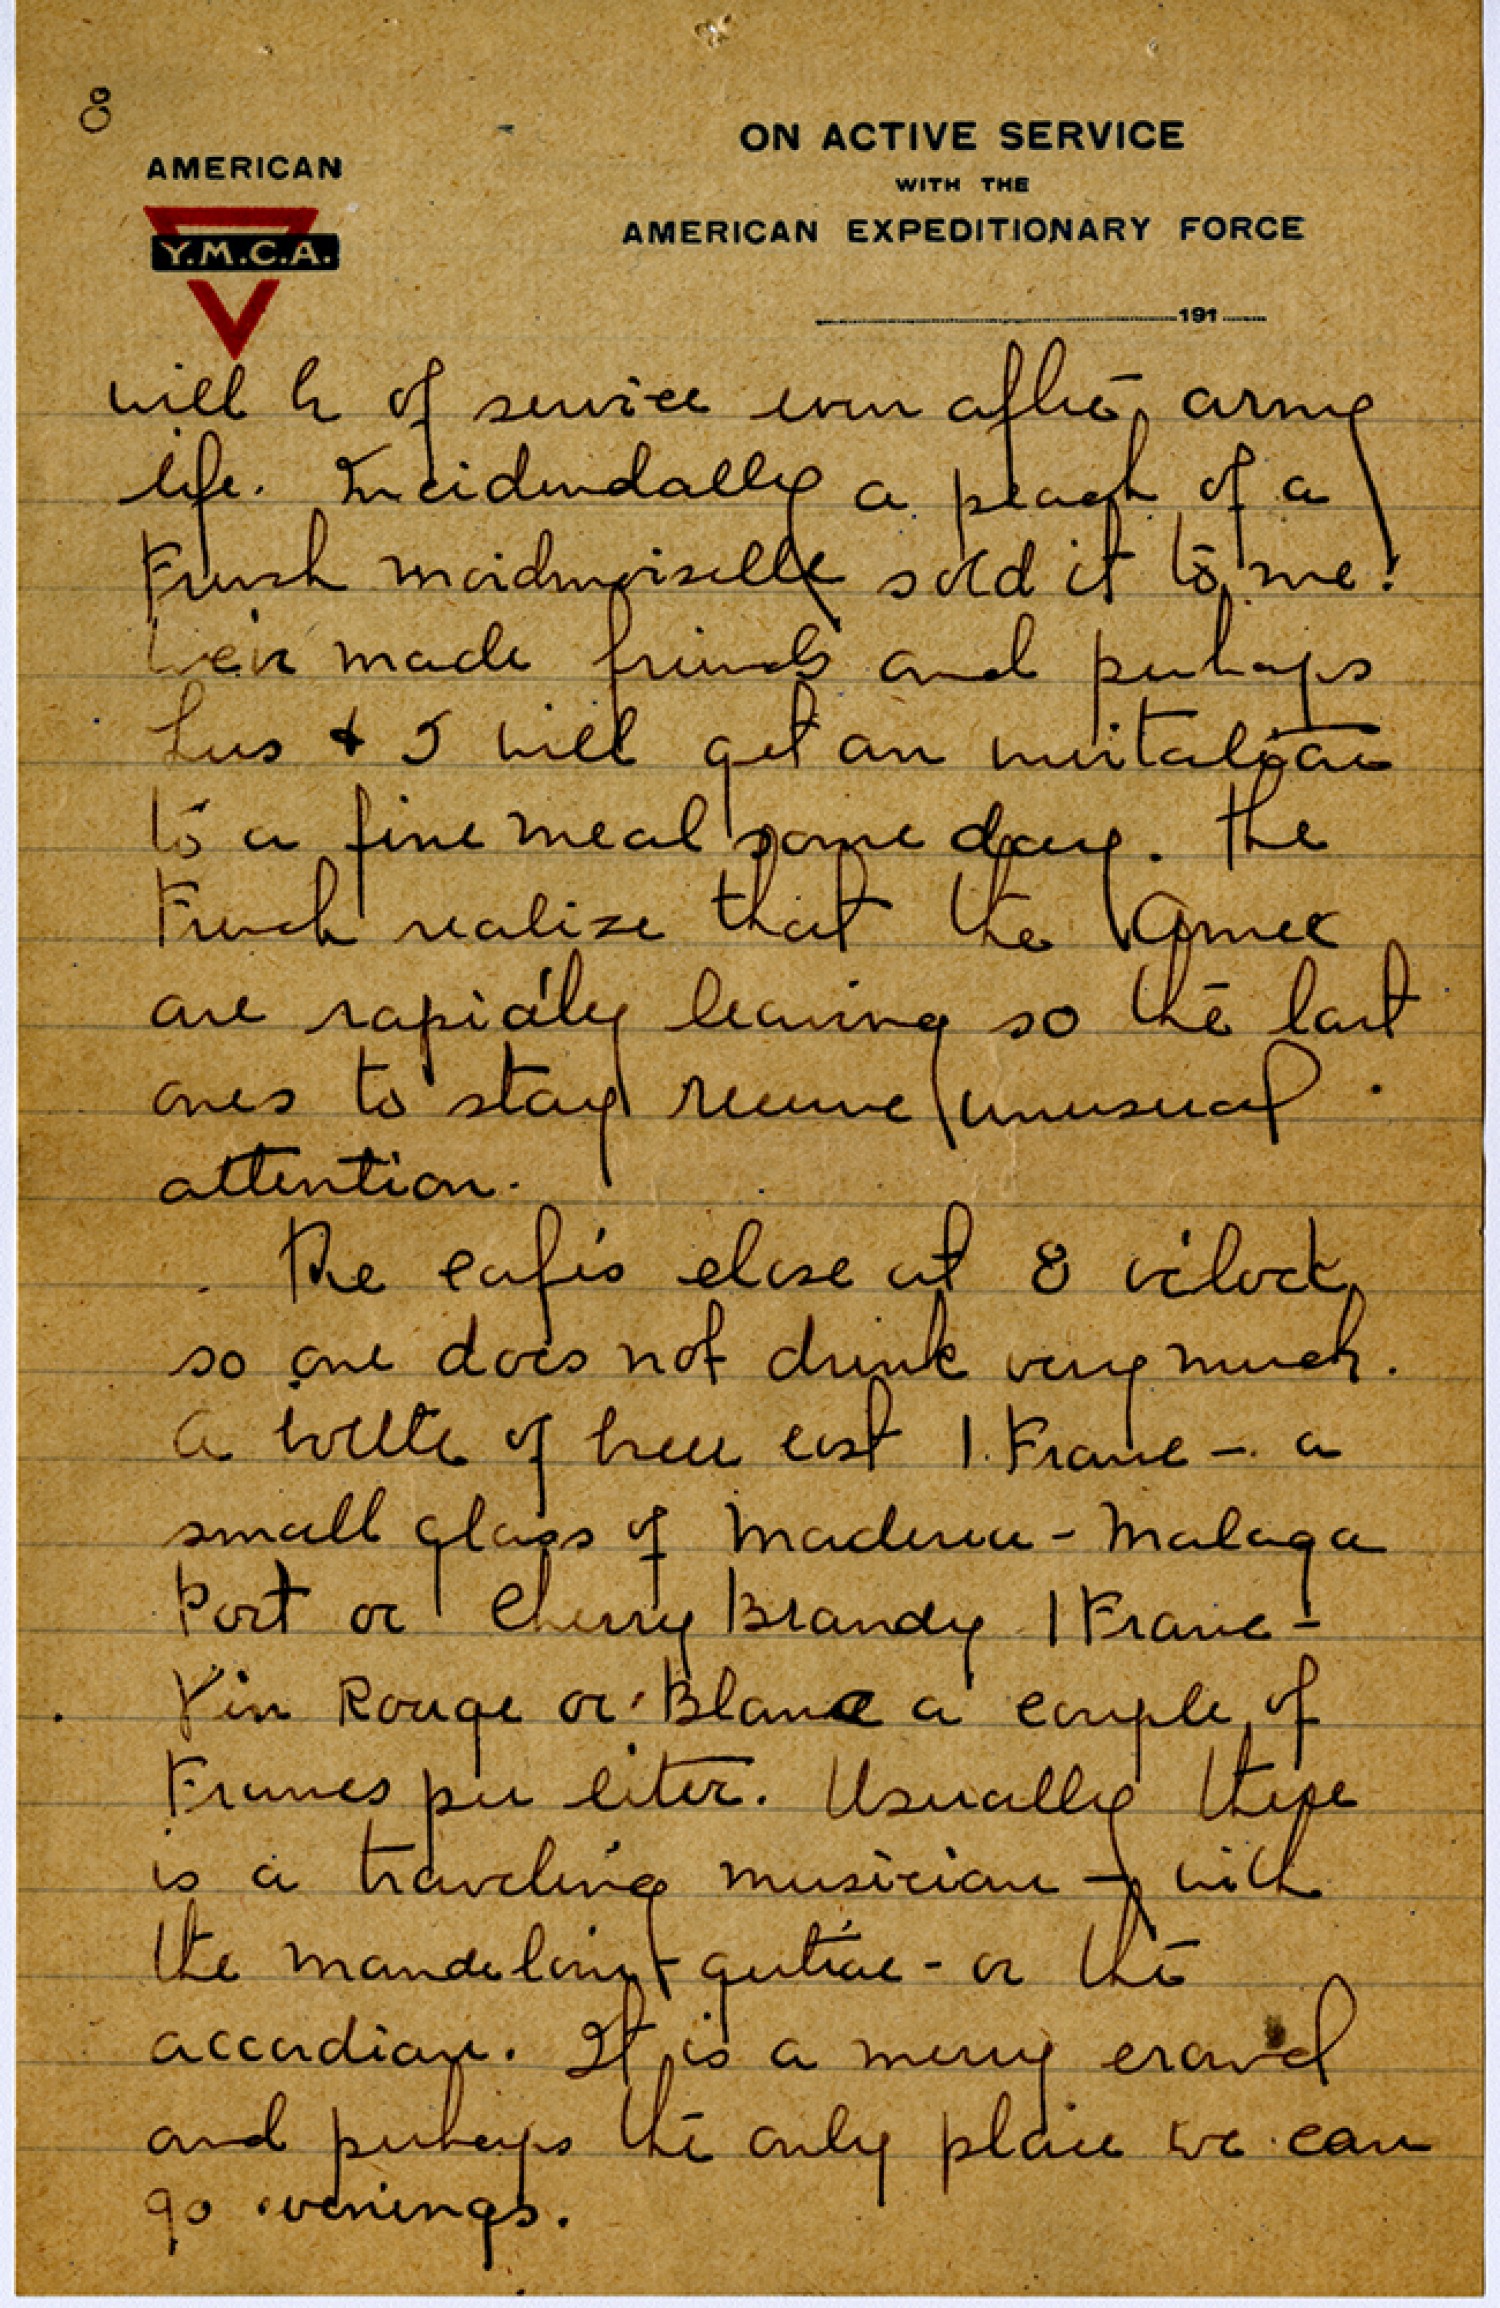 8
AMERICAN
Y.M.C.A.
ON ACTIVE SERVICE
WITH THE
AMERICAN EXPEDITIONARY FORCE
191
will be of service even after army
life. Incidendally a peach of a
French maidmoiselle sold it to me!
We've made friends and perhaps
Lus & I will get an invitation
to a fine meal some day. The
French realize that the Amer
are rapidly leaving so the last
ones to stay receive unusual
attention.
The café's close at 8 o'clock
so one does not drink very much.
A bottle of beer cost 1 Franc - a
small glass of Maderia - Malaga
Port or Cherry Brandy 1 Franc -
Vin Rouge or Blanc a couple of
Francs per liter. Usually there
is a traveling musician - with
the mandelain - guitar - or the
accordian. It is a merry crowd
and perhaps the only place we can
go evenings.